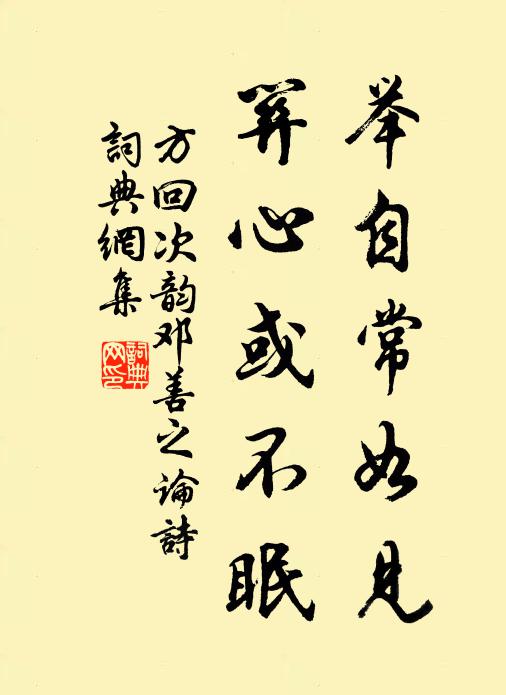 举自常如见
筭心或不眠
方回次韵邓善之论詩
詞典網集
詞典网印